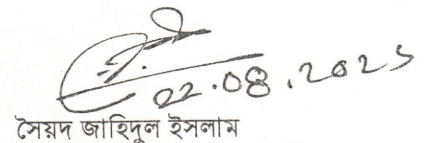 22.08.2025
সৈয়দ জাহিদুল ইসলাম